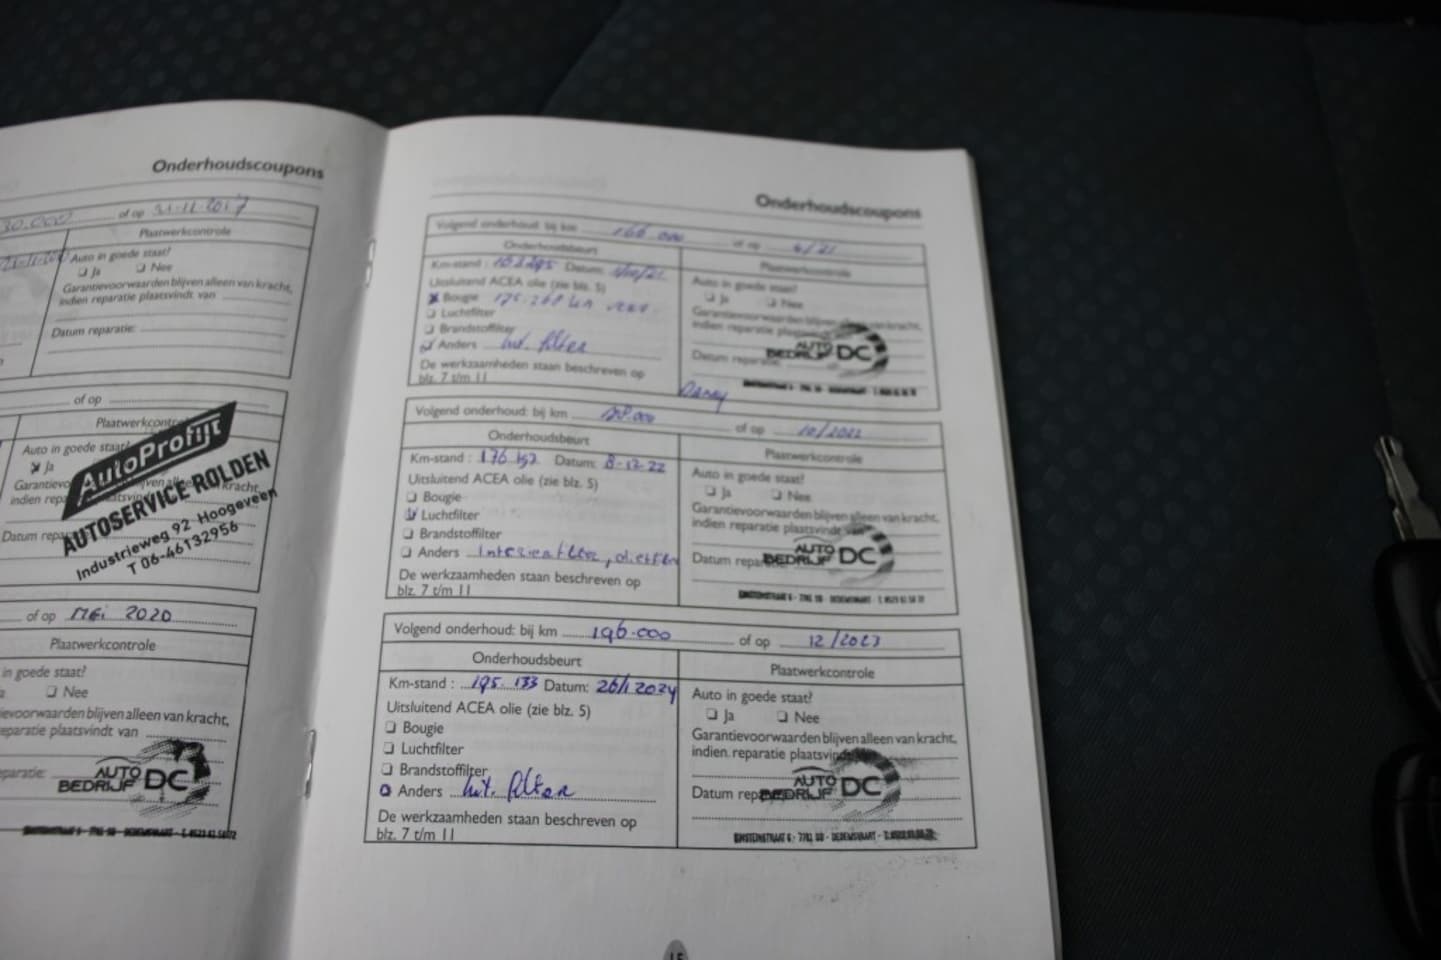 Onderhoudscoupons
30.000 of op 31-11-2017
Plaatwerkcontrole
Auto in goede staat?
Ja Nee
Garantievoorwaarden blijven alleen van kracht,
indien reparatie plaatsvindt van
Datum reparatie:
of op
Auto in goede staat?
Ja
AutoProfijt
AUTOSERVICE ROLDEN
Industrieweg 92 Hoogeveen
T 06-46132956
of op Mei 2020
Plaatwerkcontrole
in goede staat?
Nee
blijven alleen van kracht,
plaatsvindt van
AUTO
BEDRIJF DC
Onderhoudscoupons
Volgend onderhoud: bij km 166.000 of op 4/21
Onderhoudsbeurt Plaatwerkcontrole
Km-stand : Datum:
Auto in goede staat?
Uitsluitend ACEA olie (zie blz. 5)
Ja Nee
Bougie
Luchtfilter
Garantievoorwaarden blijven alleen van kracht,
Brandstoffilter
indien reparatie
Anders int. filter
Datum
AUTO
BEDRIJF DC
De werkzaamheden staan beschreven op
blz. 7 t/m 11
Volgend onderhoud: bij km of op 10/2022
Onderhoudsbeurt Plaatwerkcontrole
Km-stand : 176.152 Datum: 8-12-22
Auto in goede staat?
Uitsluitend ACEA olie (zie blz. 5)
Ja Nee
Bougie
Luchtfilter
Garantievoorwaarden blijven alleen van kracht,
indien reparatie plaatsvindt
Brandstoffilter
Anders
Datum
AUTO
BEDRIJF DC
De werkzaamheden staan beschreven op
blz. 7 t/m 11
Volgend onderhoud: bij km 196.000 of op 12/2023
Onderhoudsbeurt Plaatwerkcontrole
Km-stand : 195.133 Datum: 26/1 2024
Auto in goede staat?
Uitsluitend ACEA olie (zie blz. 5)
Ja Nee
Bougie
Garantievoorwaarden blijven alleen van kracht,
Luchtfilter
indien reparatie
Brandstoffilter
AUTO
BEDRIJF DC
Anders int. filter
Datum
De werkzaamheden staan beschreven op
blz. 7 t/m 11
EINSTEINSTRAAT 6 - DEDEMSVAART
15